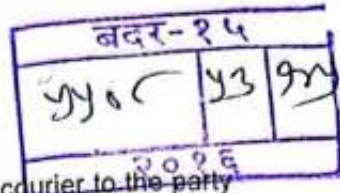 बदर-१५
५५०८ ५३
२०१६
courier to the party